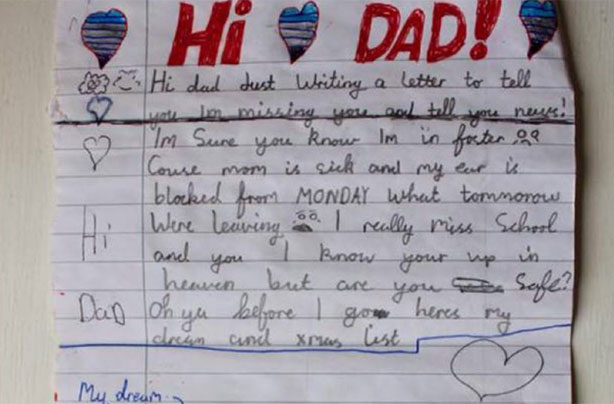 Hi DAD!
Hi dad Just Writing a letter to tell
you Im missing you and tell you news!
Im Sure you know Im in foster
Couse mom is sick and my ear is
blocked from MONDAY What tommorow
Were leaving I really miss School
and you I know your up in
heaven but are you Safe?
Hi
Dad
Oh ya before I go heres my
dream and xmas list
My dream